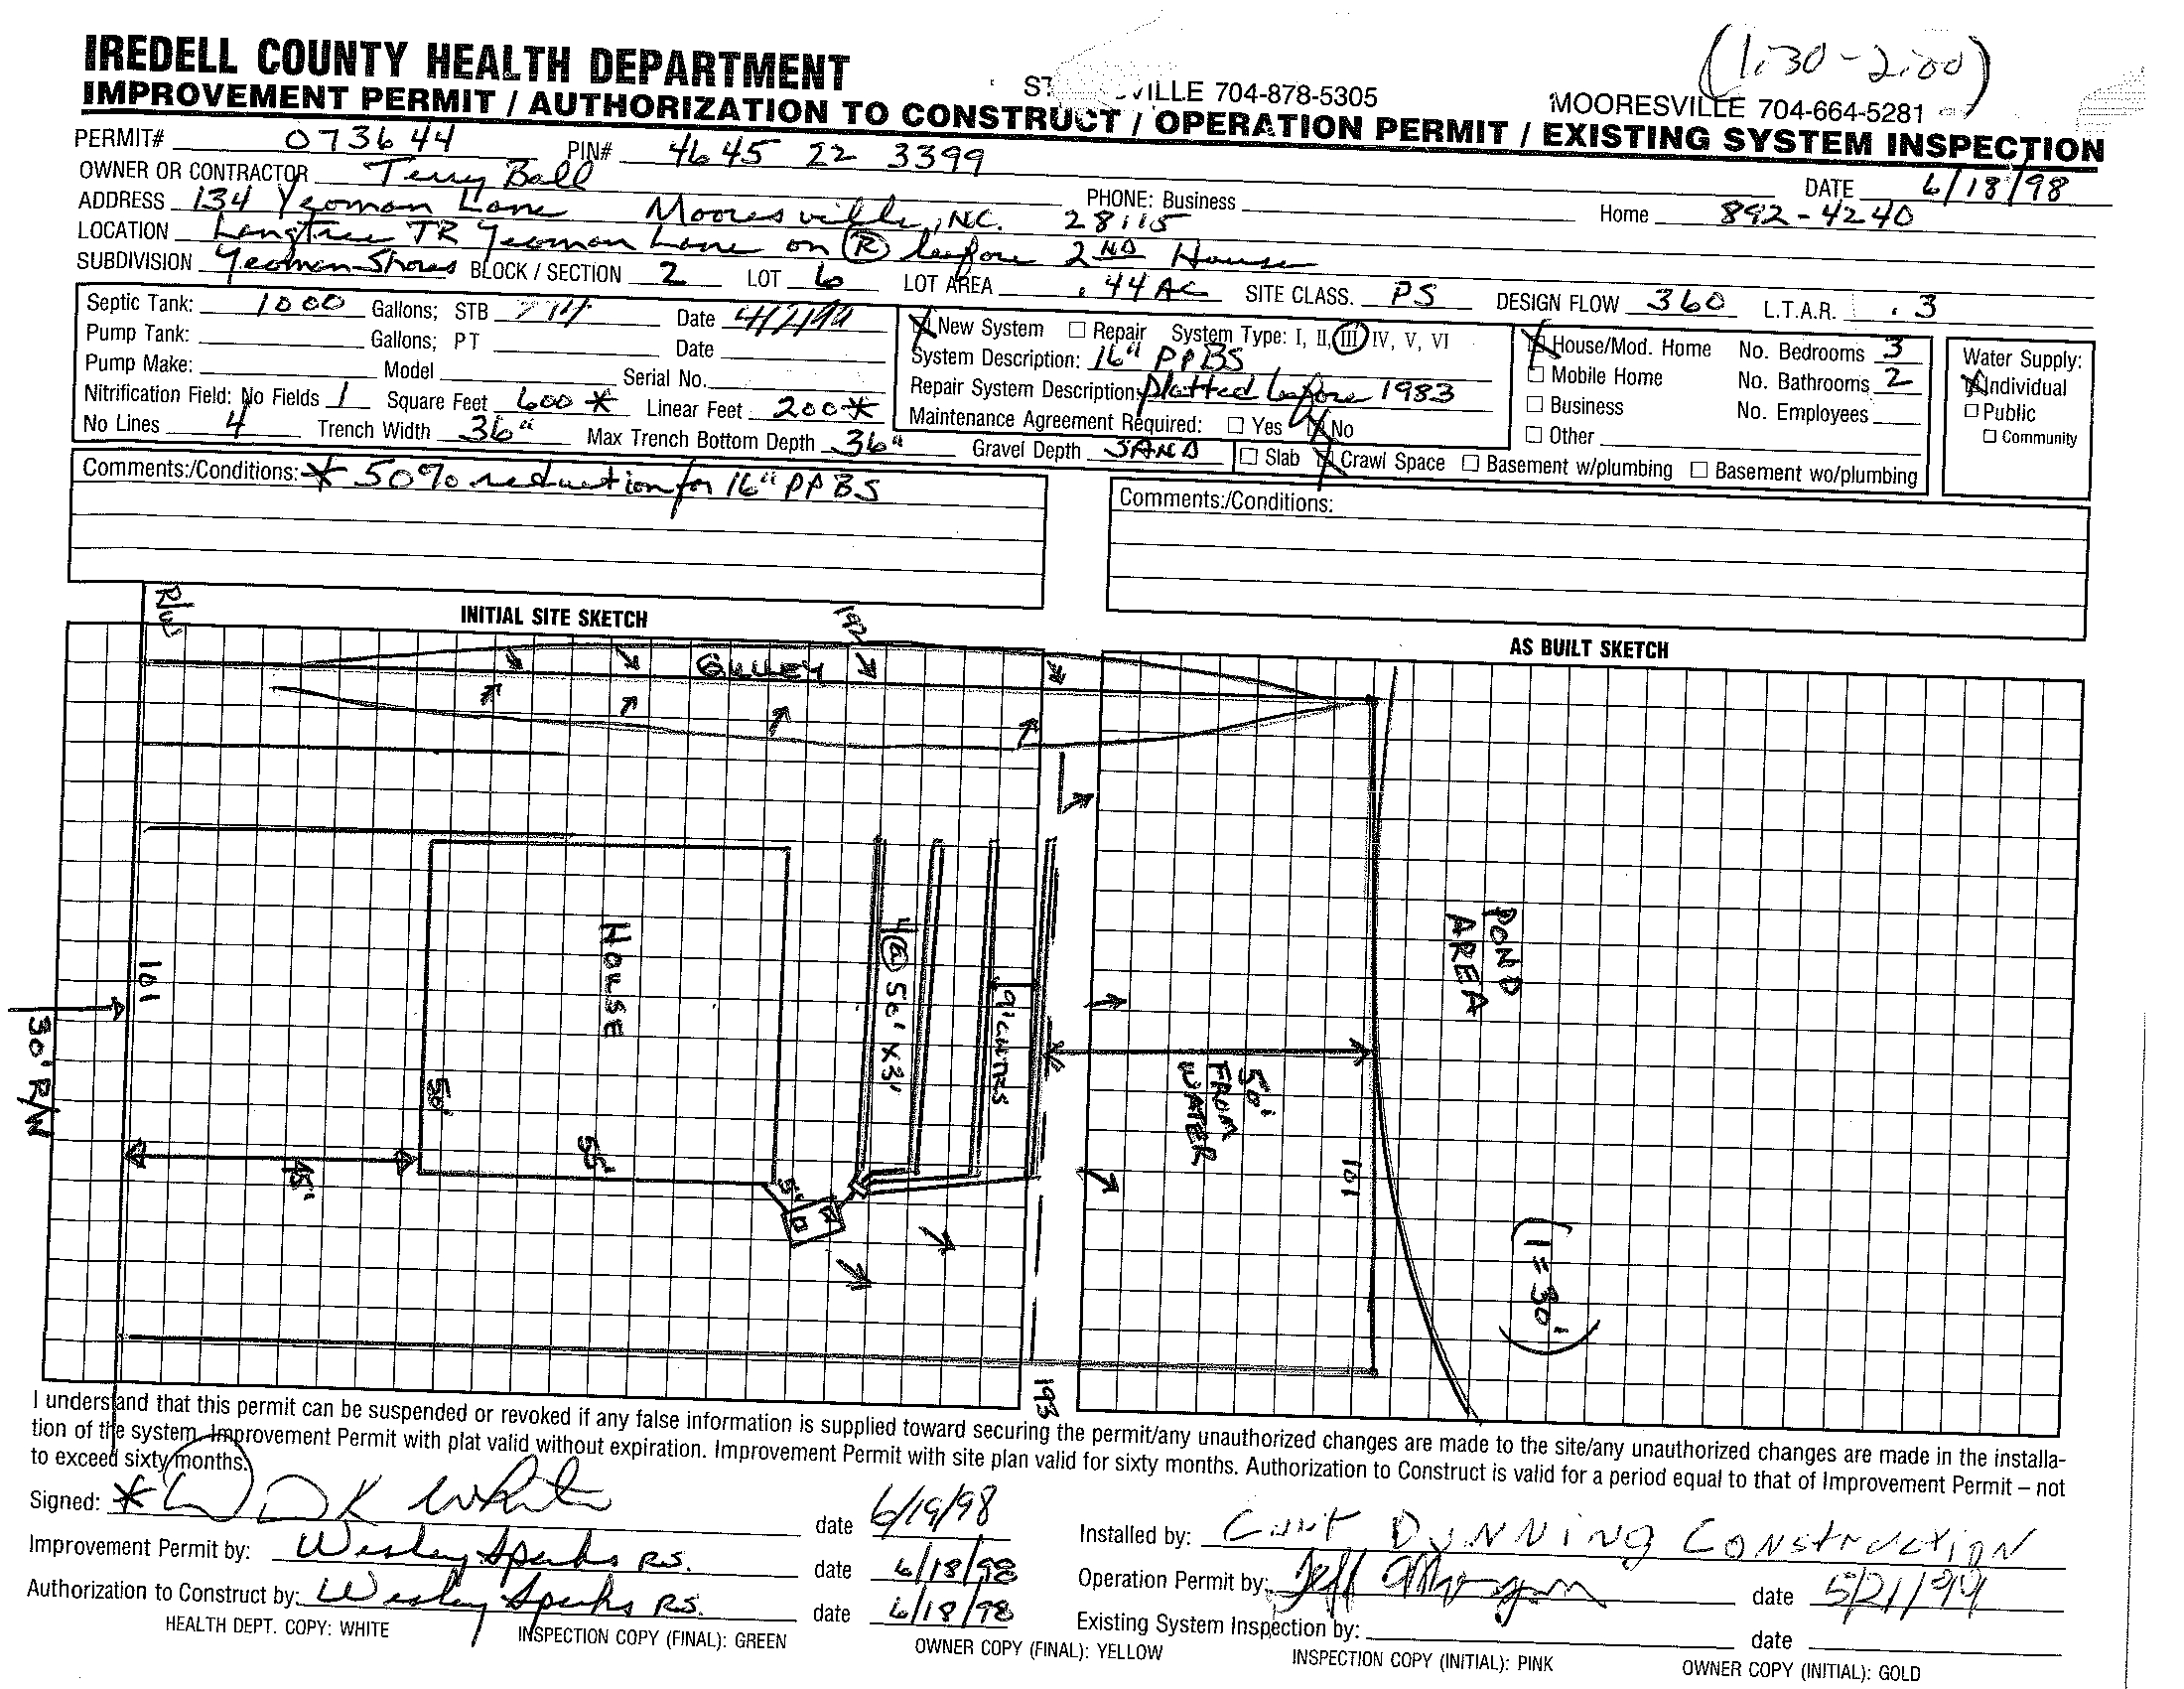 (1:30-2:00)
IREDELL COUNTY HEALTH DEPARTMENT
VILLE 704-878-5305 MOORESVILLE 704-664-5281
IMPROVEMENT PERMIT / AUTHORIZATION TO CONSTRUCT / OPERATION PERMIT / EXISTING SYSTEM INSPECTION
PERMIT# 073644 PIN# 4645 22 3399
OWNER OR CONTRACTOR Terry Ball DATE 6/18/98
ADDRESS 134 Yeoman Lane Mooresville, NC. 28115 PHONE: Business Home 892-4240
LOCATION Langtree TR Yeoman Lane on R before 2ND House
SUBDIVISION Yeoman Shores BLOCK / SECTION 2 LOT 6 LOT AREA .44 AC SITE CLASS. PS DESIGN FLOW 360 L.T.A.R. .3
Septic Tank: 1000 Gallons; STB Date
Pump Tank: Gallons; PT Date
Pump Make: Model Serial No.
Nitrification Field: No Fields 1 Square Feet 600 * Linear Feet 200 *
No Lines 4 Trench Width 36" Max Trench Bottom Depth 36" Gravel Depth SAND
New System Repair System Type: I, II, III IV, V, VI
System Description: 16" PPBS
Repair System Description: platted before 1983
Maintenance Agreement Required: Yes No
Slab Crawl Space Basement w/plumbing Basement wo/plumbing
House/Mod. Home No. Bedrooms 3
Mobile Home No. Bathrooms 2
Business No. Employees
Other
Water Supply:
Individual
Public
Community
Comments:/Conditions: * 50% reduction for 16" PPBS
Comments:/Conditions:
INITIAL SITE SKETCH
AS BUILT SKETCH
R/W
192
GULLEY
HOUSE
4 @ 50' X 3'
9' CNTRS
101
30' R/W
50'
55'
45'
5'
50'
FROM
WATER
101
POND
AREA
(1=30')
193
I understand that this permit can be suspended or revoked if any false information is supplied toward securing the permit/any unauthorized changes are made to the site/any unauthorized changes are made in the installa-
tion of the system. Improvement Permit with plat valid without expiration. Improvement Permit with site plan valid for sixty months. Authorization to Construct is valid for a period equal to that of Improvement Permit – not
to exceed sixty months.
Signed: * DK White date 6/19/98
Improvement Permit by: Wesley Sparks R.S. date 6/18/98
Authorization to Construct by: Wesley Sparks R.S. date 6/18/98
Installed by: Curt Dunning Construction
Operation Permit by: Jeff date 5/21/99
Existing System Inspection by: date
HEALTH DEPT. COPY: WHITE INSPECTION COPY (FINAL): GREEN OWNER COPY (FINAL): YELLOW INSPECTION COPY (INITIAL): PINK OWNER COPY (INITIAL): GOLD